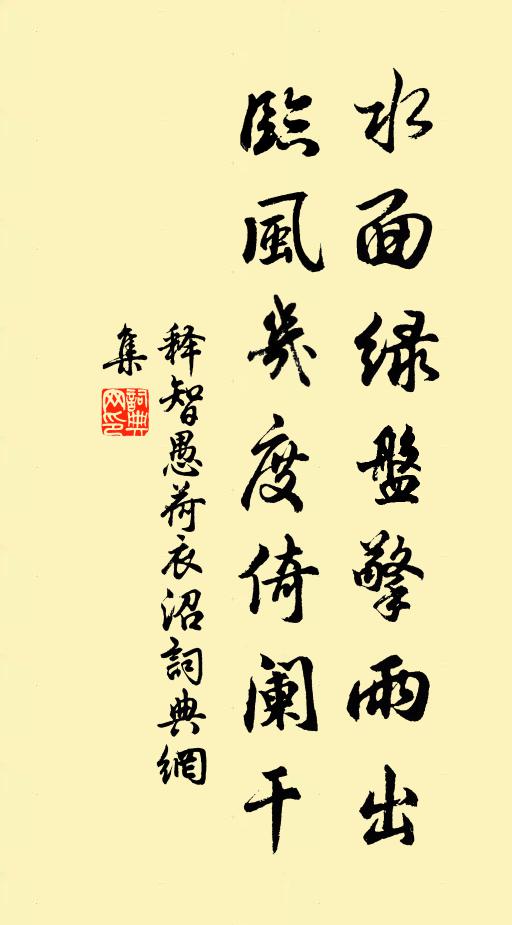 水面绿盤擎雨出
臨風幾度倚阑干
释智愚荷衣沼詞典網
集
詞典網印